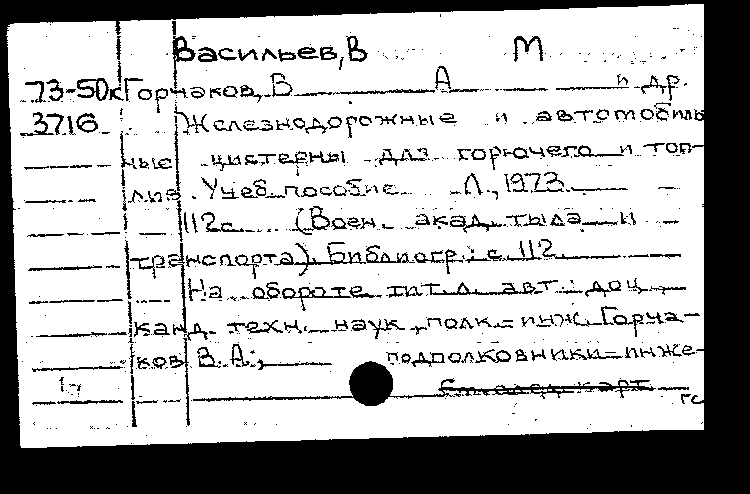 Васильев, В М
73-50к Горчаков, В А и др.
3716 Железнодорожные и автомобиль
ные цистерны для горючего и топ-
лив. Учеб. пособие Л., 1973.
112с. (Воен. акад. тыла и
транспорта). Библиогр.: с. 112.
На обороте тит. л. авт.: доц.,
канд. техн. наук, полк.-инж. Горча-
ков В. А., подполковники-инже-
См. след. карт.
гс